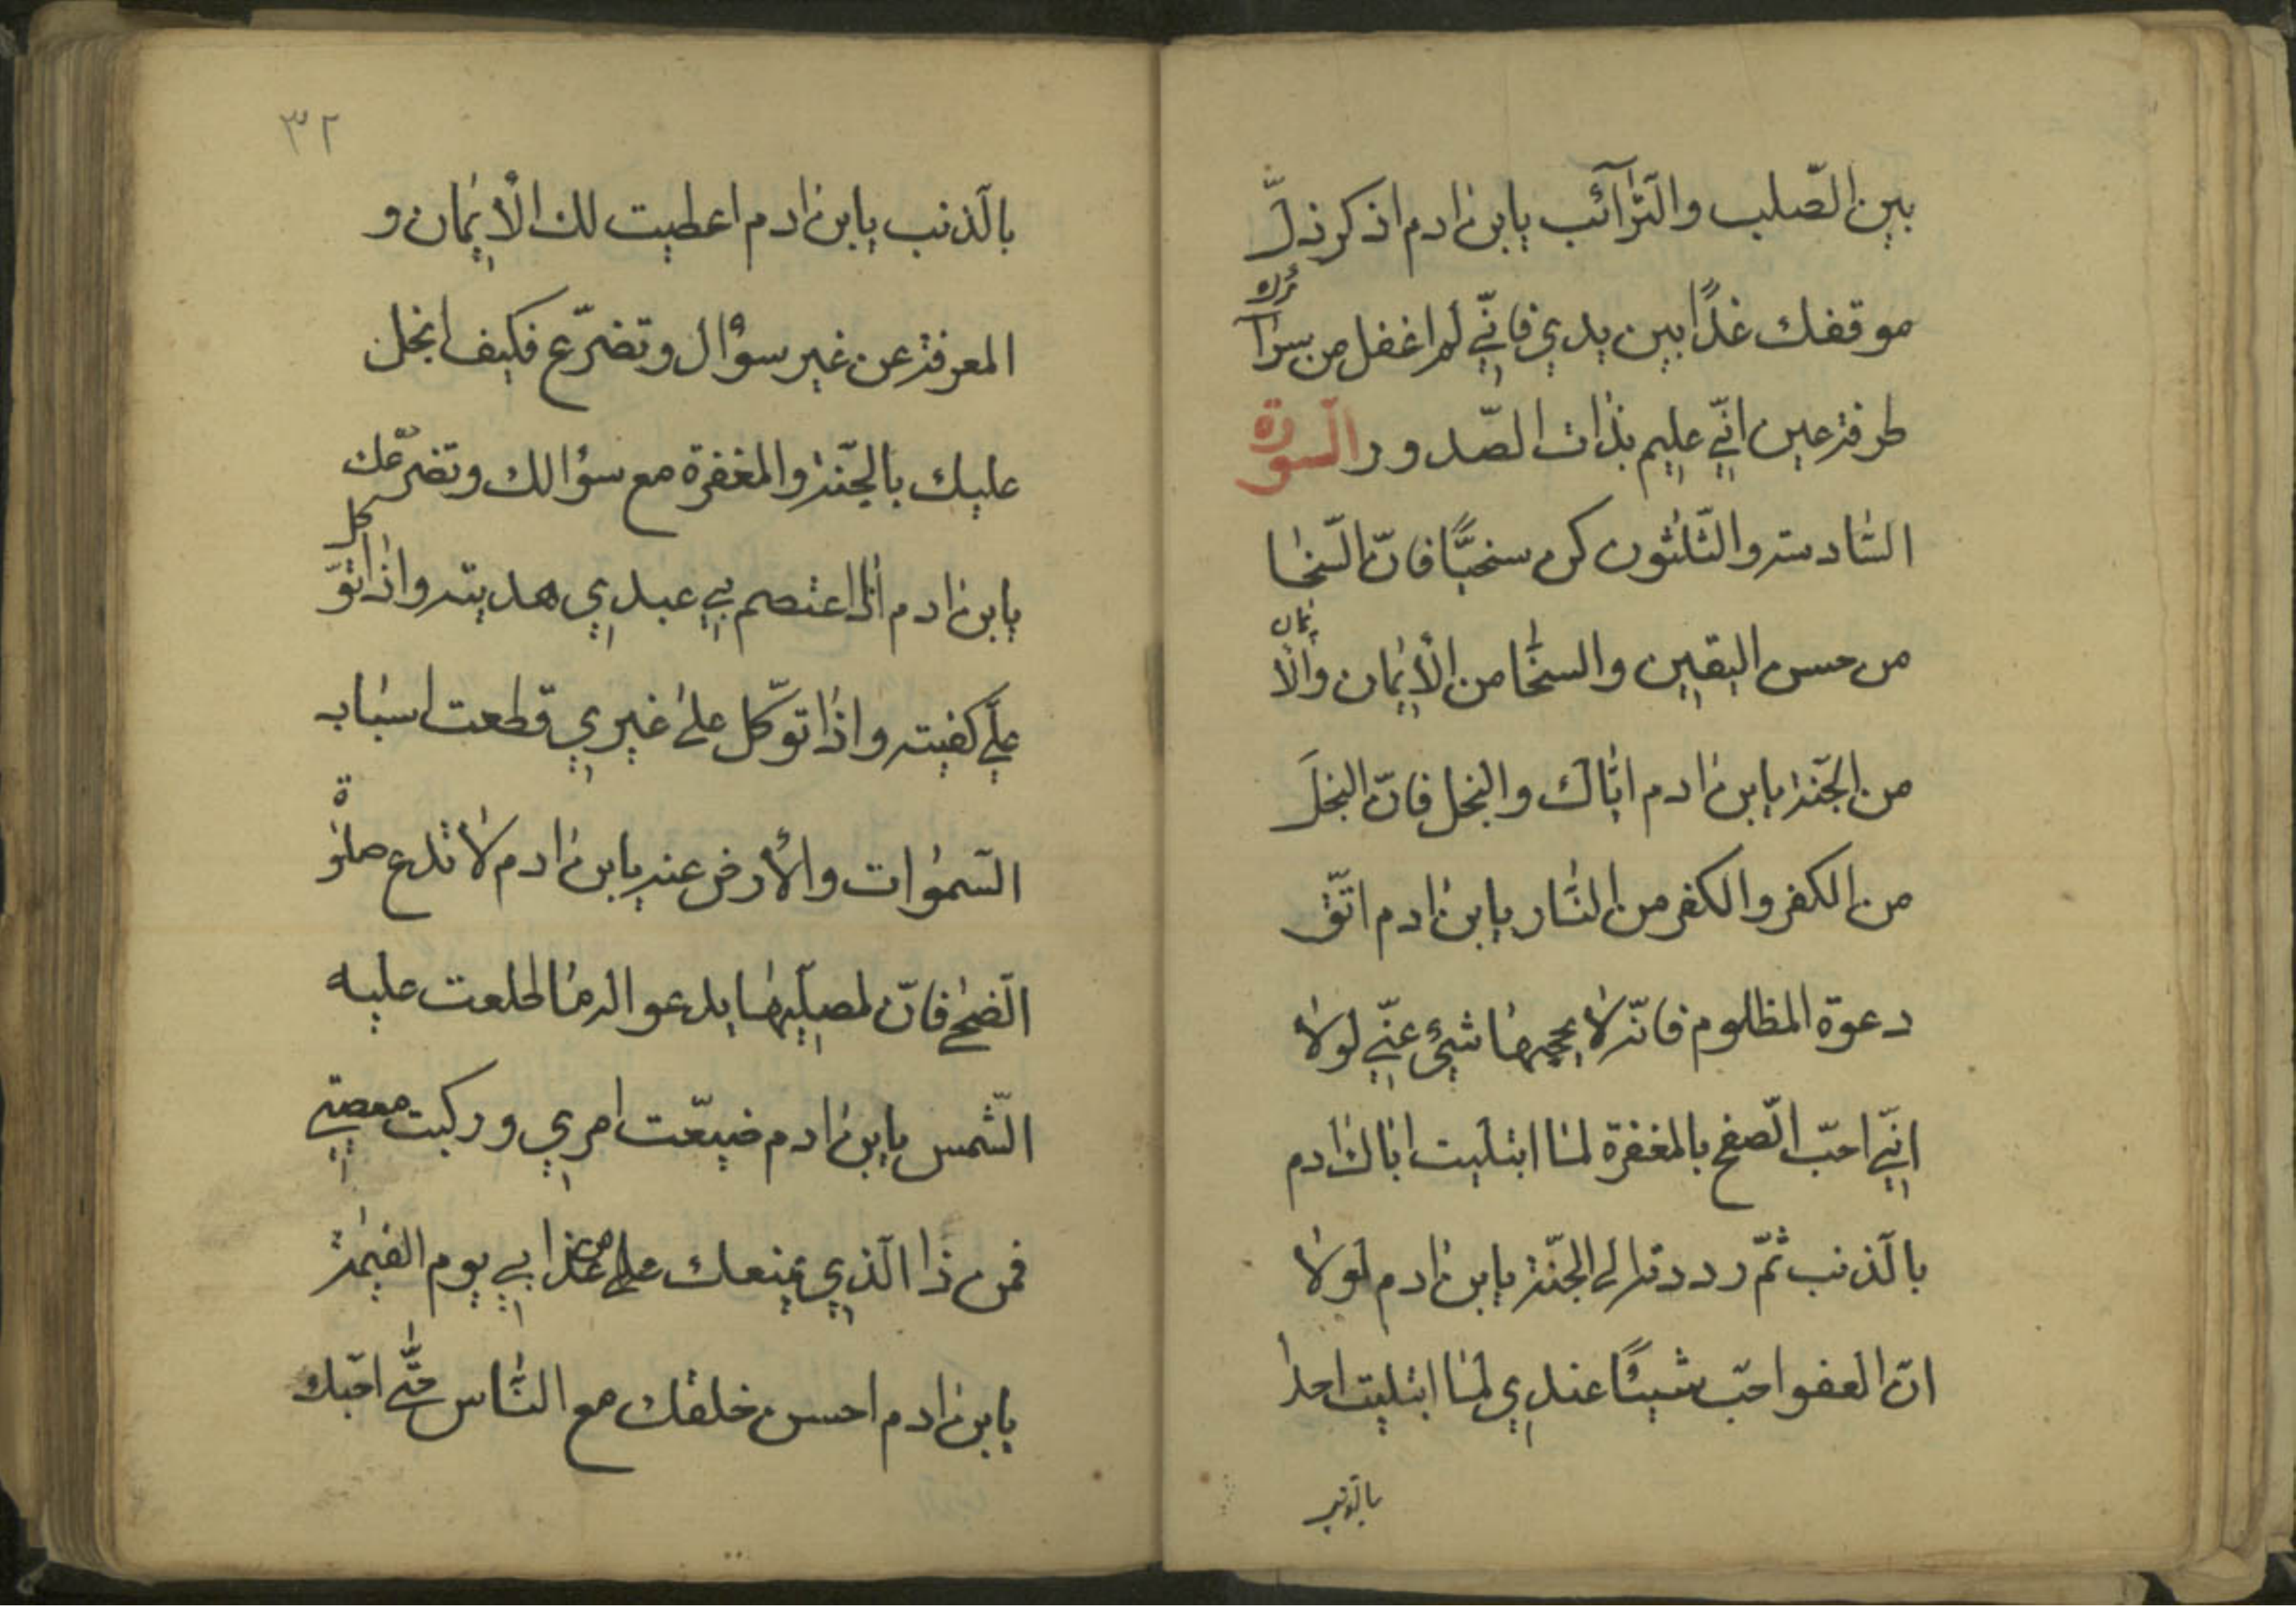 بين الصّلب والتّرآئب يابن ادم اذكر ذلّ
موقفك غدًا بين يدي فانّي لم اغفل من سرآئرك
طرفة عين انّي عليم بذات الصّدور السورة
السّادسة والثّلثون كن سخيًّا فانّ السّخا
من حسن اليقين والسخّا من الأيمان والأيمان
من الجنّة يابن ادم ايّاك والبخل فانّ البخل
من الكفر والكفر من النّار يابن ادم اتّق
دعوة المظلوم فانّه لا يحجبها شيئ عنّي لولا
انّي احبّ الصّفح بالمغفرة لما ابتليت اباك ادم
بالذنب ثمّ رددته الى الجنّة يابن ادم لولا
انّ العفو احبّ شيئًا عندي لما ابتليت احدا
بالذنب
٣٢
بالذنب يابن ادم اعطيت لك الأيمان و
المعرفة عن غير سؤال وتضرّع فكيف ابخل
عليك بالجنّة والمغفرة مع سؤالك وتضرّعك
يابن ادم اذا اعتصم بي عبدي هديته واذا توكل
عليّ كفيته واذا توكّل على غيري قطعت اسباب
السّموات والأرض عنه يابن ادم لا تدع صلوة
الضّحى فانّ لمصلّيها يدعو اله ما طلعت عليه
الشّمس يابن ادم ضيّعت امري وركبت معصيتي
فمن ذا الّذي يمنعك من عذابي يوم القيمة
يابن ادم احسن خلقك مع النّاس حتّى احبّك